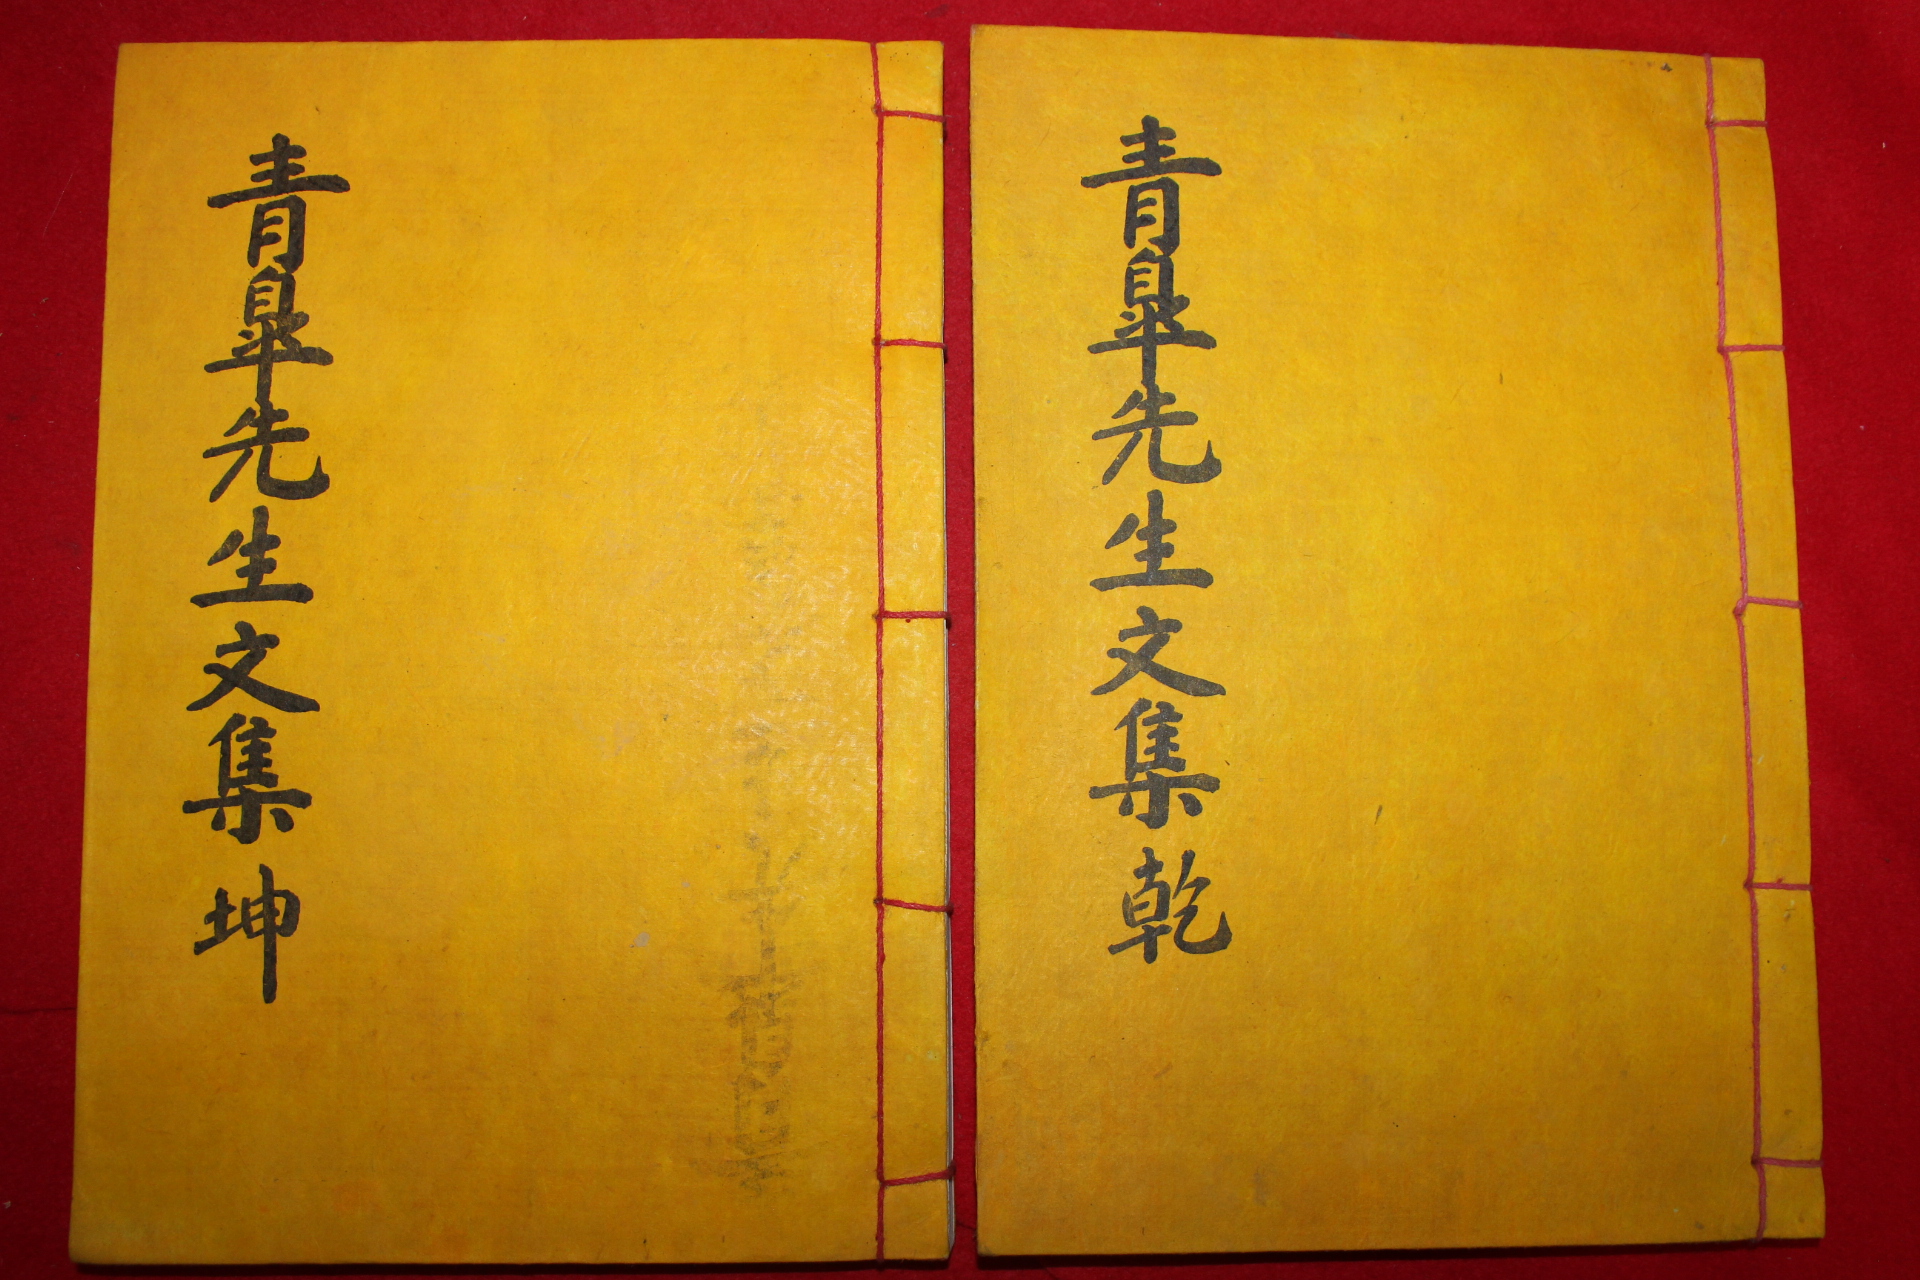 青皐先生文集 乾
青皐先生文集 坤